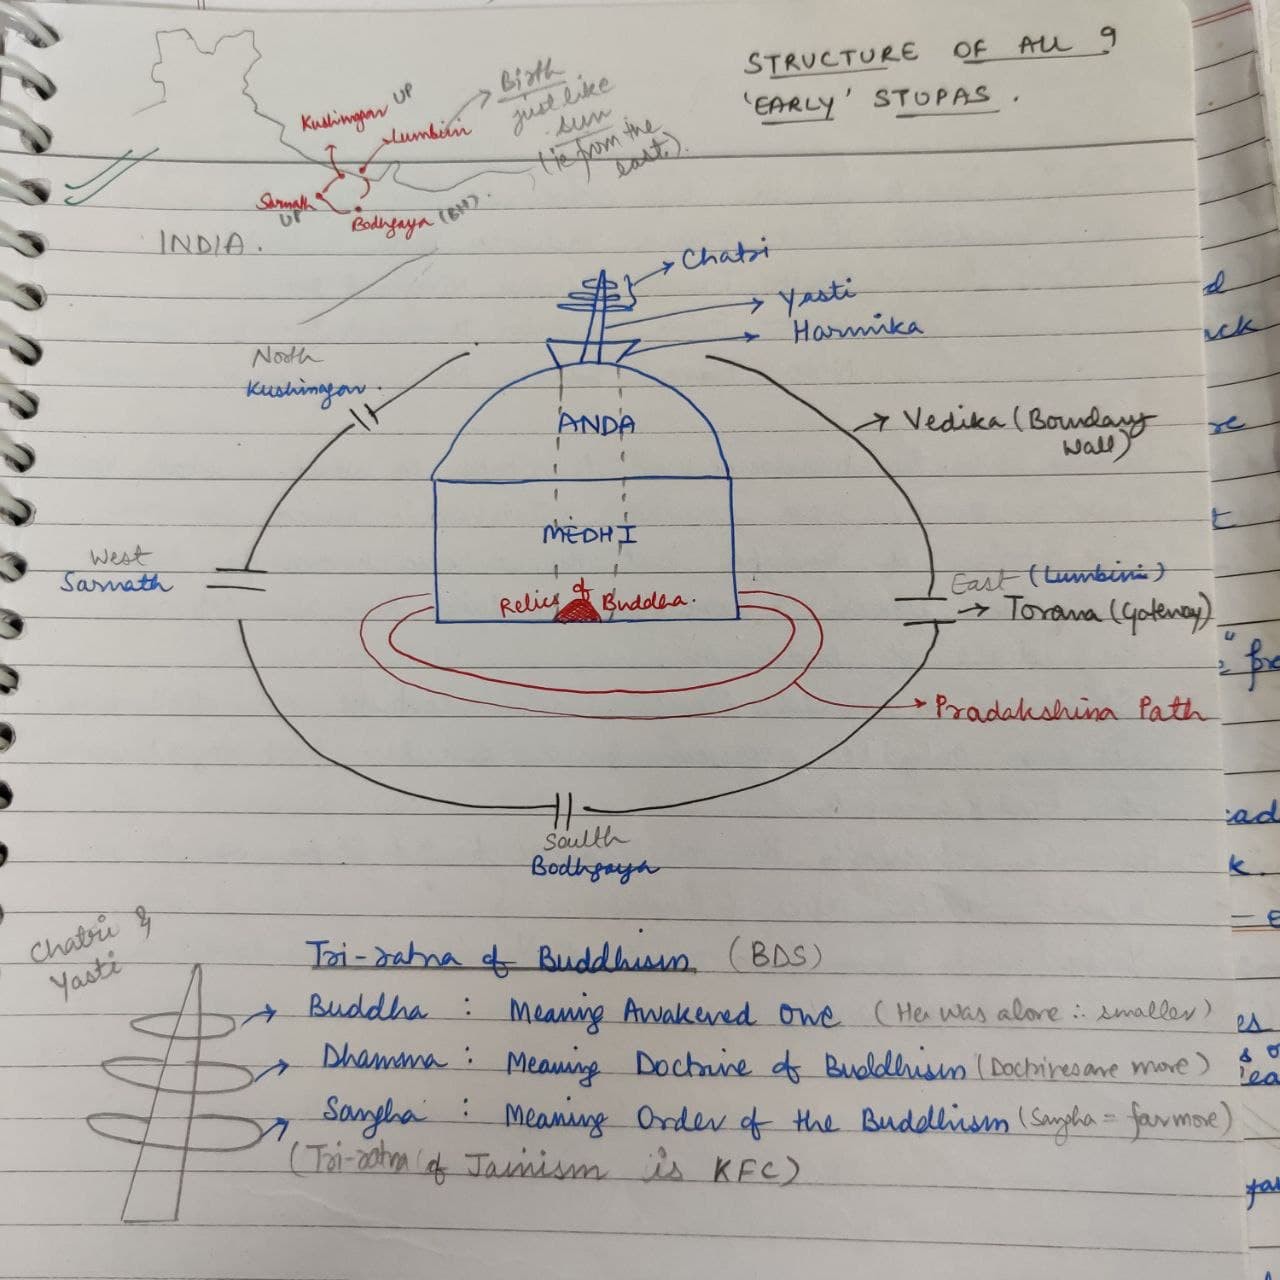 STRUCTURE OF ALL 9
'EARLY' STUPAS.
Kushinagar UP
Lumbini
Birth
just like
sun
(ie from the
east.).
Sarnath
UP
Bodhgaya (BH).
INDIA.
Chatri
Yasti
Harmika
North
Kushinagar.
ANDA
Vedika (Boundary
Wall)
MEDHI
West
Sarnath
Relics of Buddha.
East (Lumbini)
Torana (Gateway)
Pradakshina Path
South
Bodhgaya
Chatri &
Yasti
Tri-ratna of Buddhism (BDS)
Buddha : Meaning Awakened One (He was alone ∴ smaller)
Dhamma : Meaning Doctrine of Buddhism (Doctrines are more)
Sangha : Meaning Order of the Buddhism (Sangha = far more)
(Tri-ratna of Jainism is KFC)